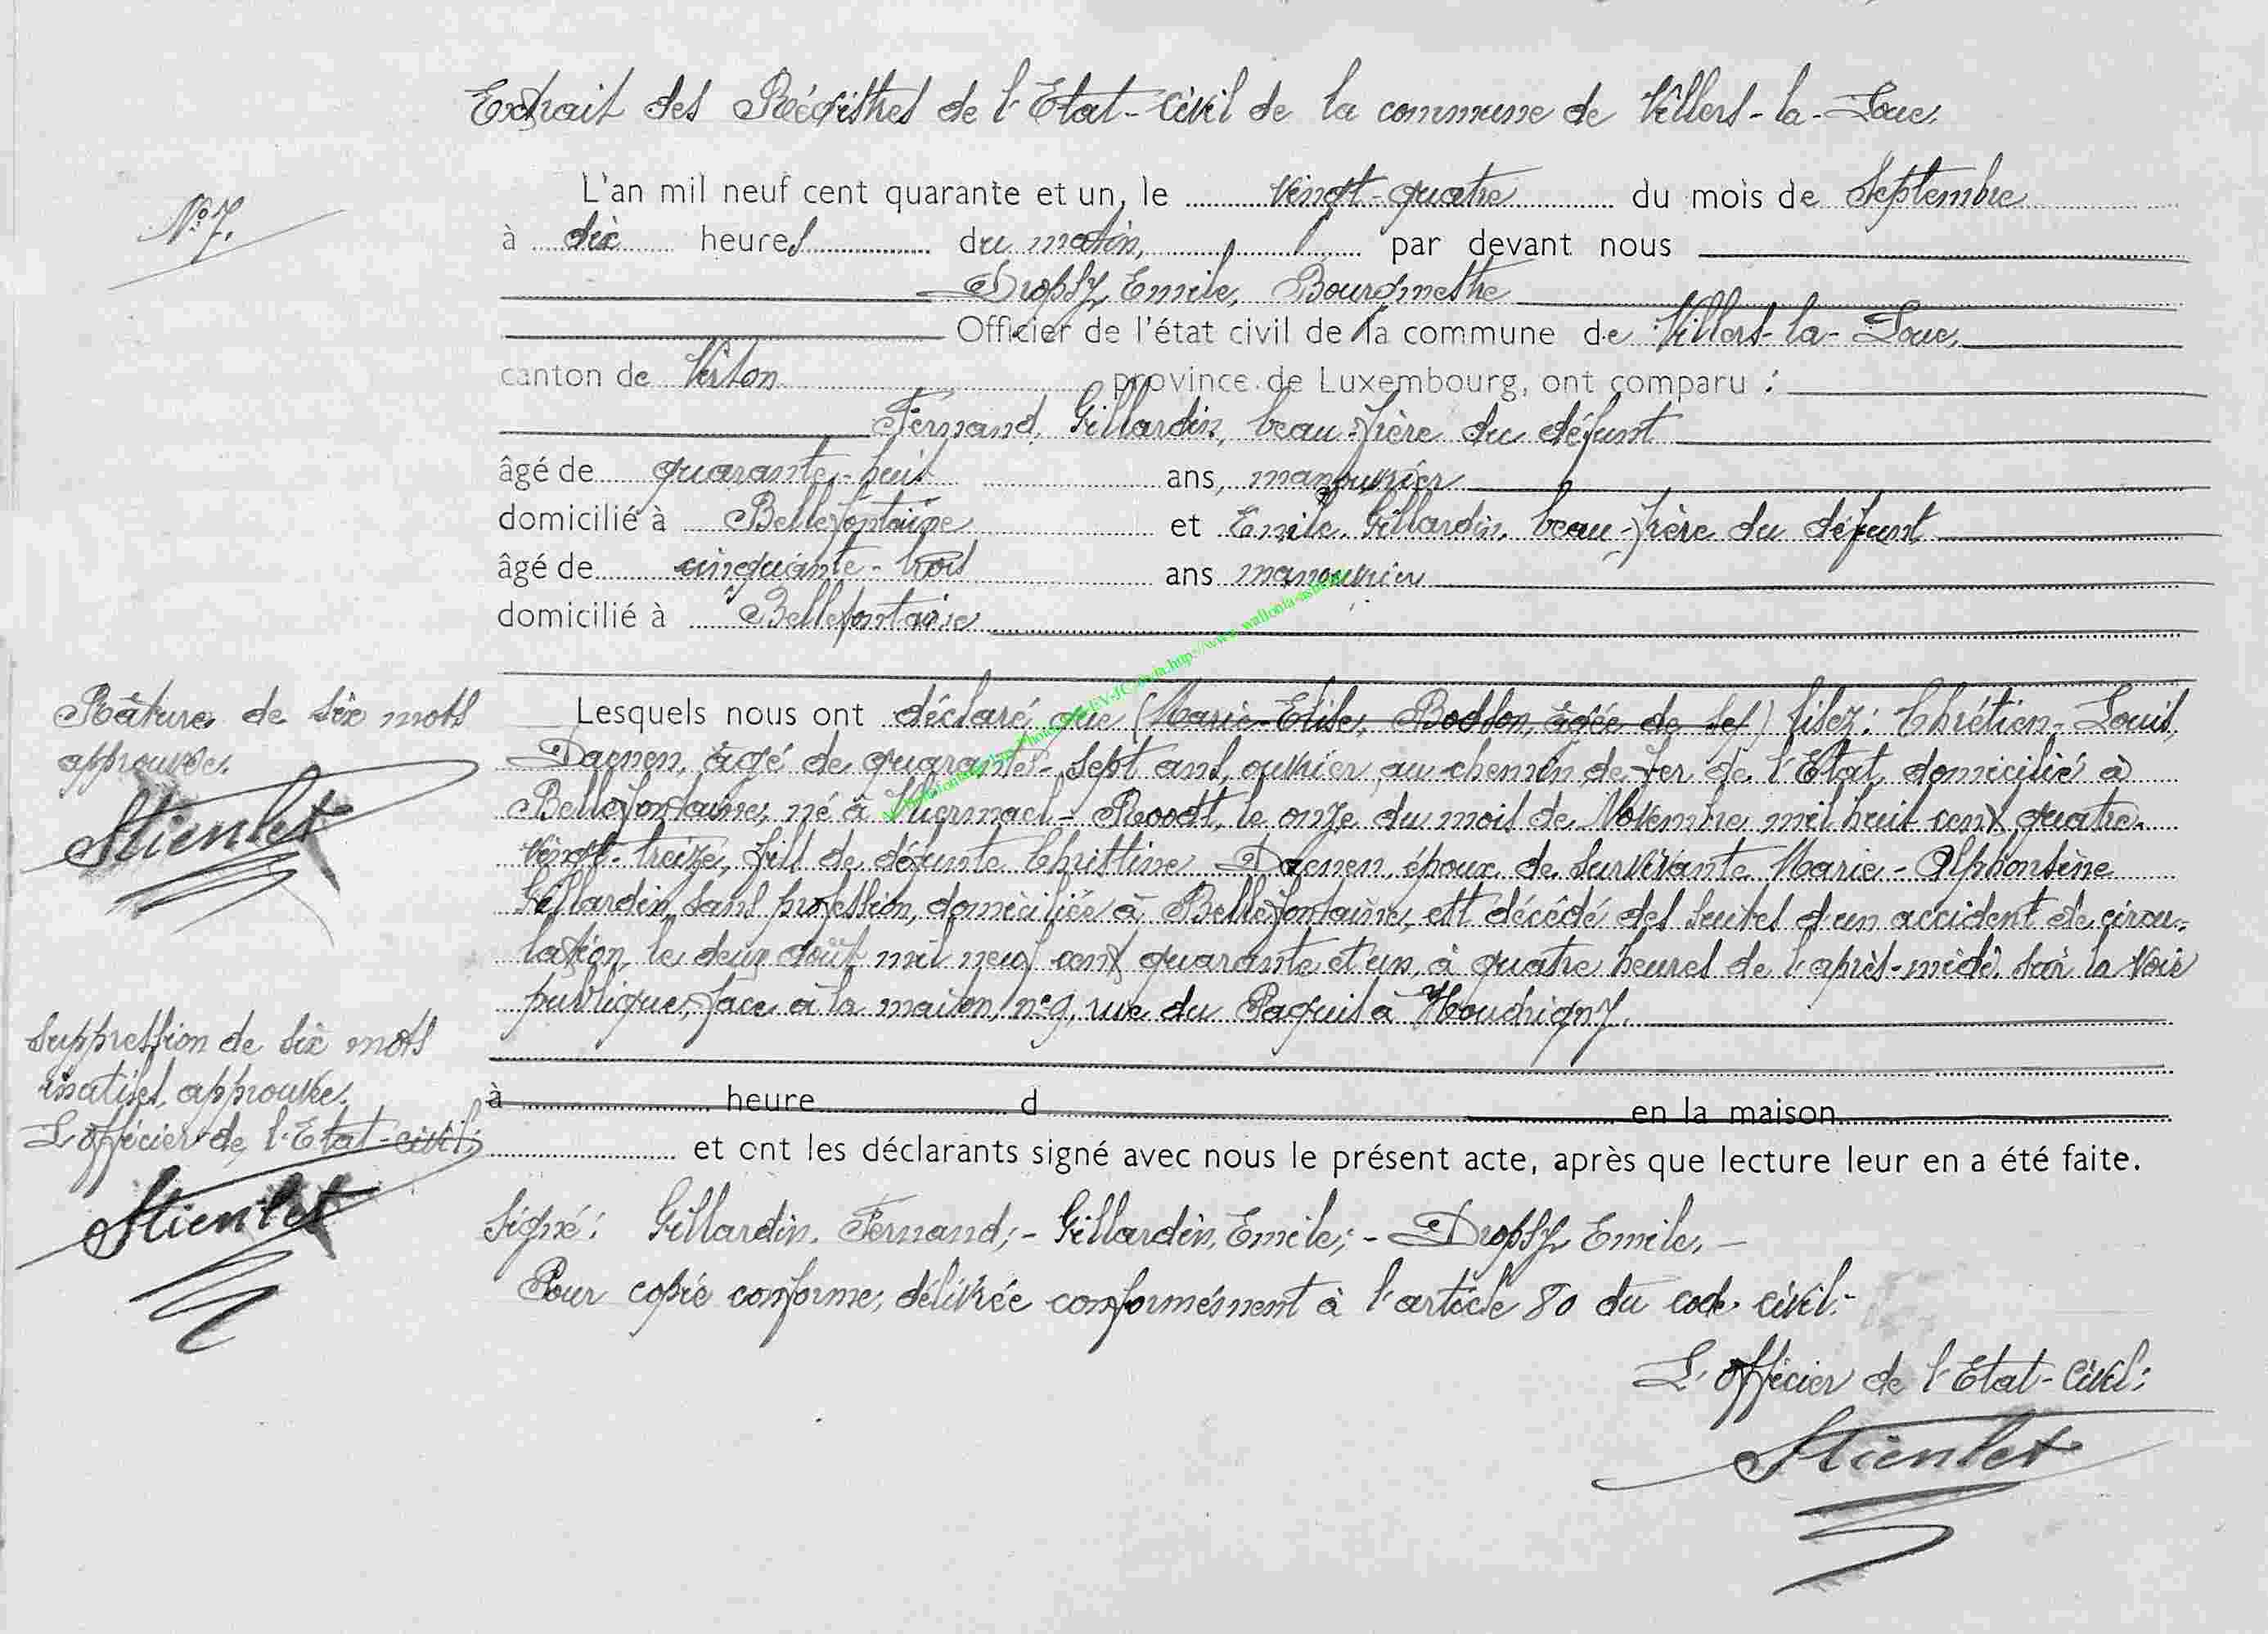 Extrait des Régistres de l'Etat-Civil de la commune de Villers-la-Loue.
N° 7.
L'an mil neuf cent quarante et un, le vingt-quatre du mois de Septembre
à dix heures du matin, par devant nous
Dropsy Emile, Bourgmestre
Officier de l'état civil de la commune de Villers-la-Loue,
canton de Virton province de Luxembourg, ont comparu :
Fernand, Gillardin, beau-frère du défunt
âgé de quarante-huit ans, manouvrier
domicilié à Bellefontaine et Emile, Gillardin, beau-frère du défunt
âgé de cinquante-trois ans manouvrier
domicilié à Bellefontaine
Rature de six mots
approuvée.
Stienlet
Lesquels nous ont déclaré que (Marie-Elise, Bodson, âgée de sef) lisez: Chrétien-Louis,
Daenen, âgé de quarante-sept ans, ouvrier au chemin de fer de l'Etat, domicilié à
Bellefontaine, né à Vliermael-Roodt, le onze du mois de Novembre mil huit cent quatre-
vingt-treize, fils de défunte Christine Daenen, époux de survivante Marie-Alphonsine
Gillardin, sans profession, domiciliée à Bellefontaine, est décédé des suites d'un accident de circu-
lation, le deux août mil neuf cent quarante et un, à quatre heures de l'après-midi, sur la voie
publique, face à la maison, n° 9, rue du Paquis à Houdrigny.
Suppression de six mots
inutiles, approuvée.
L'officier de l'Etat-civil;
Stienlet
à heure d en la maison
et ont les déclarants signé avec nous le présent acte, après que lecture leur en a été faite.
Signé: Gillardin, Fernand;- Gillardin, Emile;- Dropsy Emile,-
Pour copie conforme, délivrée conformément à l'article 80 du code civil.-
L'officier de l'Etat-Civil;
Stienlet